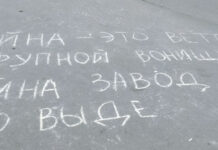 ЙНА - ЭТО ВЕТ
РУПНОЙ ВОНИЩ
ЙНА ЗАВОД,
О ВЫДЕ